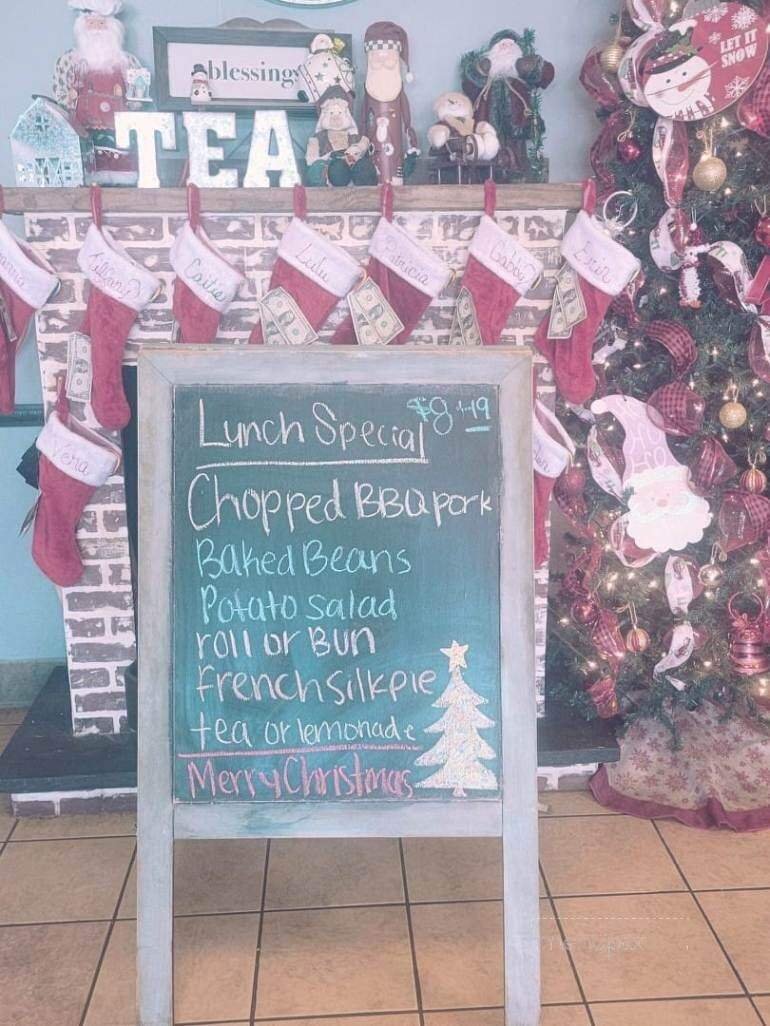 blessings
TEA
LET IT
SNOW
Catie
Lulu
Patricia
Gabby
Erin
Vera
HO
HO
Lunch Special
Chopped BBQ pork
Baked Beans
Potato salad
roll or Bun
french silk pie
tea or lemonade
Merry Christmas